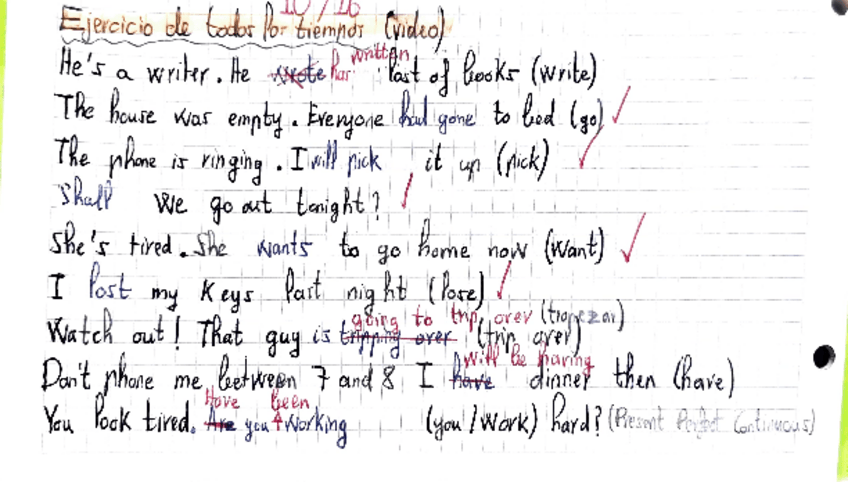 10/16
Ejercicio de todos los tiempos (video)
He's a writer. He wrote has written lost of books (write)
The house was empty. Everyone had gone to bed (go)
The phone is ringing. I will pick it up (pick)
Shall we go out tonight?
She's tired. She wants to go home now (want)
I lost my keys last night (lose)
Watch out! That guy is tripping over going to trip over (tropezar) (trip over)
Don't phone me between 7 and 8 I have will be having dinner then (have)
You look tired. Are Have you been working (you/work) hard? (Present Perfect Continuous)